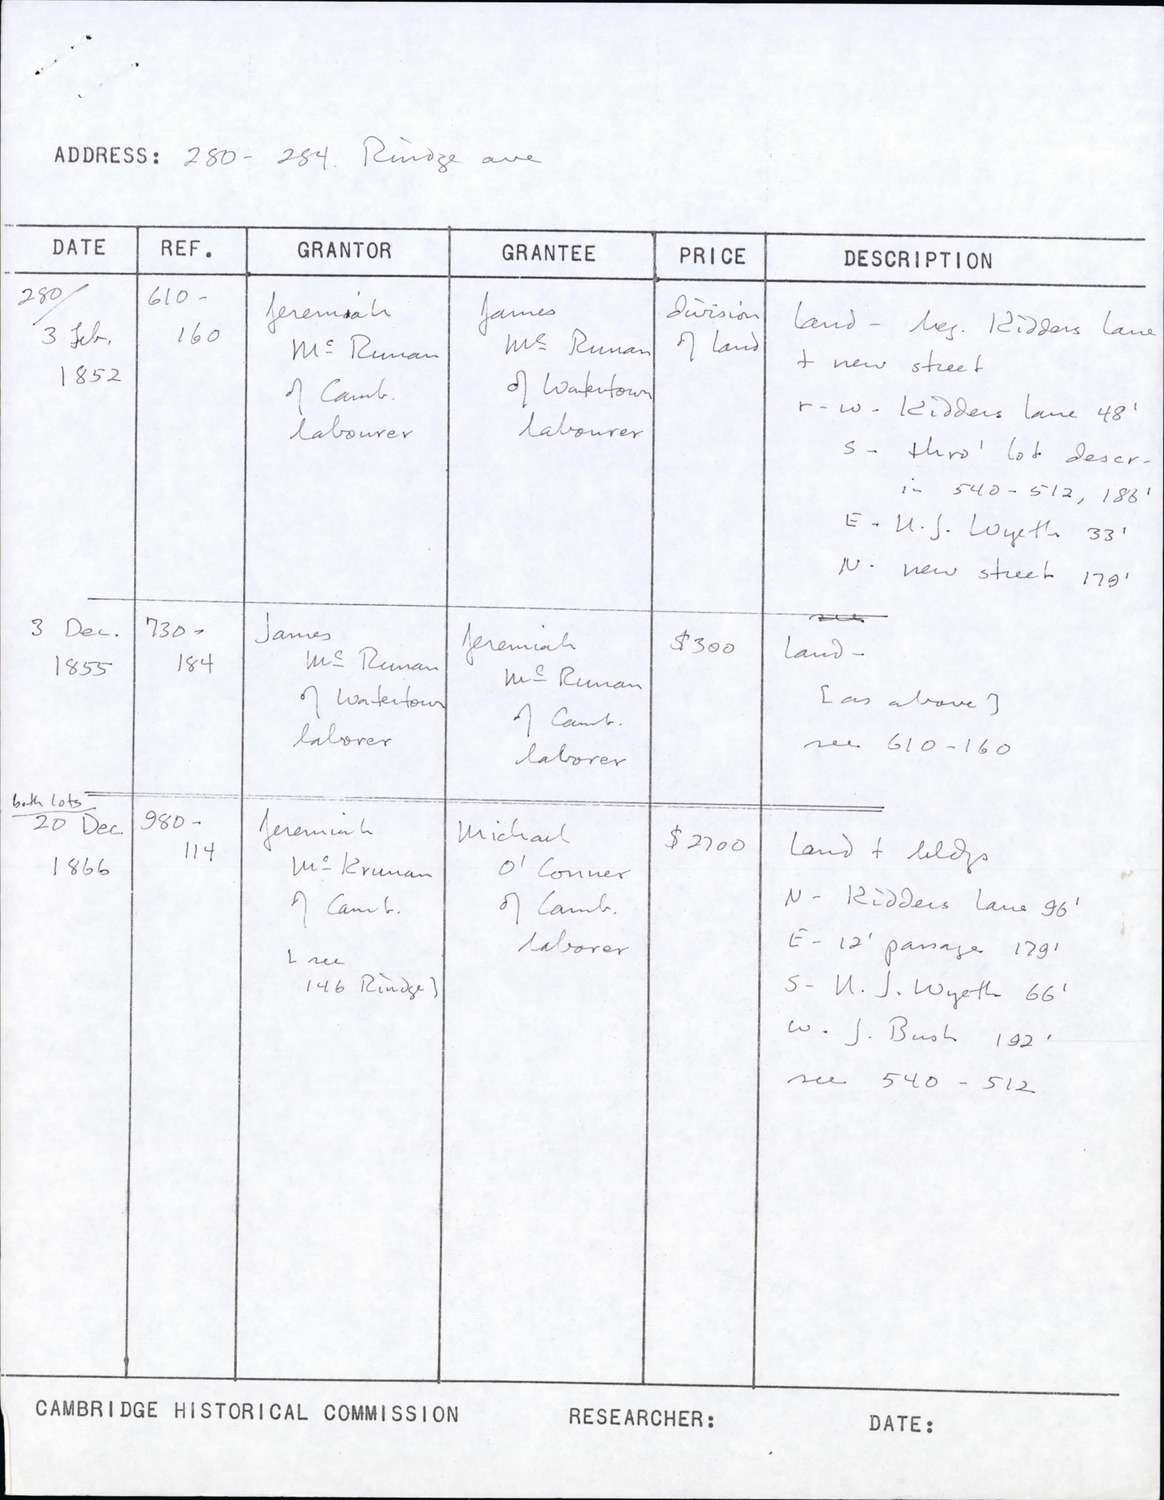 ADDRESS: 280- 284. Rindge ave
DATE REF. GRANTOR GRANTEE PRICE DESCRIPTION
280/
3 Feb.
1852
610-
160
Jeremiah
Mc Runan
of Camb.
labourer
James
Mc Runan
of Watertown
labourer
division
of land
land - beg. Kidders Lane
+ new street
r-w- Kidders Lane 48'
S- thro' lot descr-
in 540-512, 186'
E- N.J. Wyeth 33'
N- new street 179'
3 Dec.
1855
730-
184
James
Mc Runan
of Watertown
laborer
Jeremiah
Mc Runan
of Camb.
laborer
$300
see
Land-
[as above]
see 610-160
both lots
20 Dec
1866
980-
114
Jeremiah
Mc Krunan
of Camb.
[see
146 Rindge]
Michael
O'Conner
of Camb.
laborer
$2700
Land + bldgs
N- Kidders Lane 96'
E- 12' passage 179'
S- N. J. Wyeth 66'
W. J. Bush 192'
see 540-512
CAMBRIDGE HISTORICAL COMMISSION RESEARCHER: DATE: